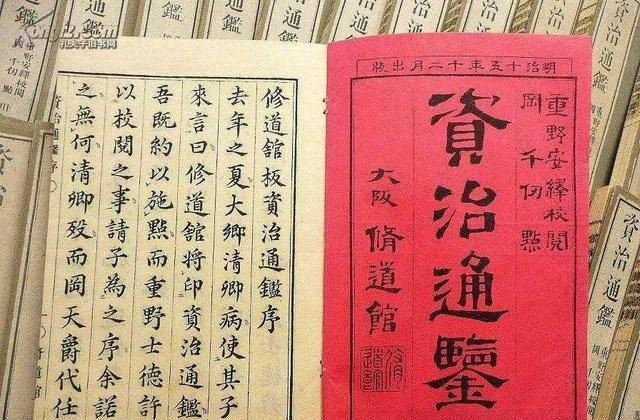 明治十五年十二月出版
重野安繹校閱
岡千仞點
資治通鑒
大阪 脩道館
修道舘板資治通鑑序
去年之夏大鄉清卿病使其子
來言曰修道舘將印資治通鑑
吾既約以施點而重野士德許
以校閱之事請子為之序余諾
之無何清卿歿而岡天爵代任
資治通鑑序
資治通鑑
重野安繹校閱
岡千仞點
資治通鑑
孔夫子旧书网